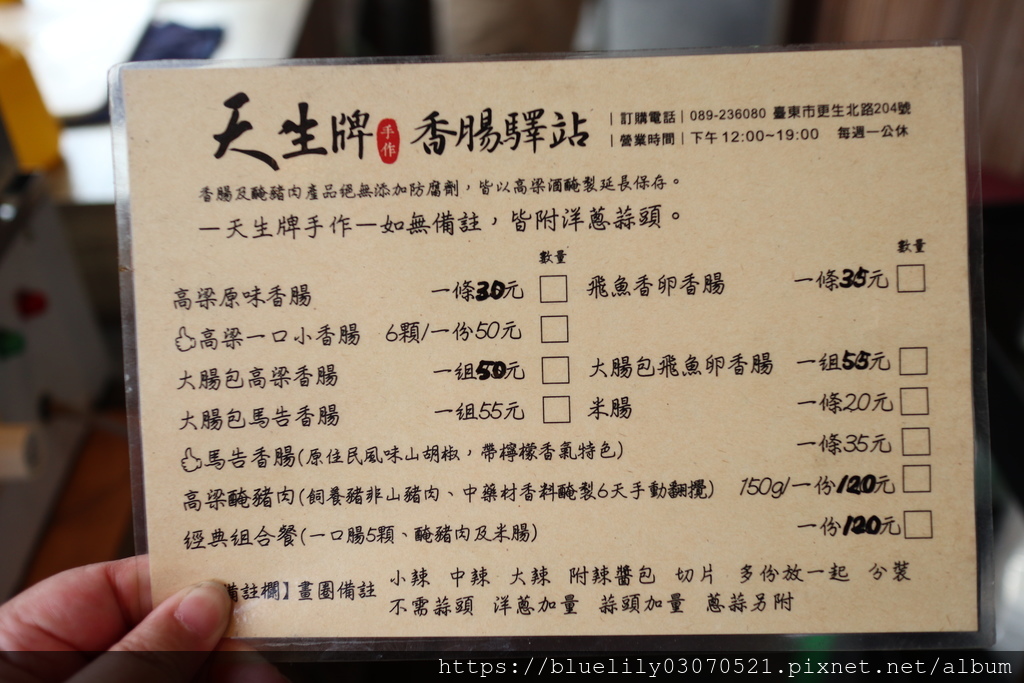 天生牌 手作 香腸驛站
|訂購電話|089-236080 臺東市更生北路204號
|營業時間|下午12:00~19:00 每週一公休
香腸及醃豬肉產品絕無添加防腐劑，皆以高梁酒醃製延長保存。
—天生牌手作—如無備註，皆附洋蔥蒜頭。
數量 數量
高梁原味香腸 一條30元 飛魚香卵香腸 一條35元
高梁一口小香腸 6顆/一份50元
大腸包高梁香腸 一組50元 大腸包飛魚卵香腸 一組55元
大腸包馬告香腸 一組55元 米腸 一條20元
馬告香腸(原住民風味山胡椒，帶檸檬香氣特色) 一條35元
高梁醃豬肉(飼養豬非山豬肉、中藥材香料醃製6天手動翻攪) 150g/一份120元
經典組合餐(一口腸5顆、醃豬肉及米腸) 一份120元
備註欄】畫圈備註 小辣 中辣 大辣 附辣醬包 切片 多份放一起 分裝
不需蒜頭 洋蔥加量 蒜頭加量 蔥蒜另附
https://bluelily03070521.pixnet.net/album